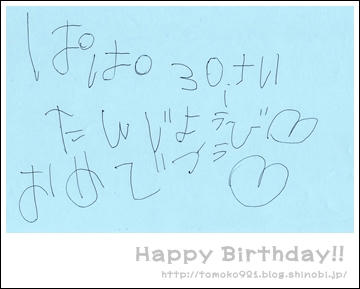 ぱぱ 30さい
たんじようび♡
おめでとう♡
Happy Birthday!!
http://tomoko921.blog.shinobi.jp/